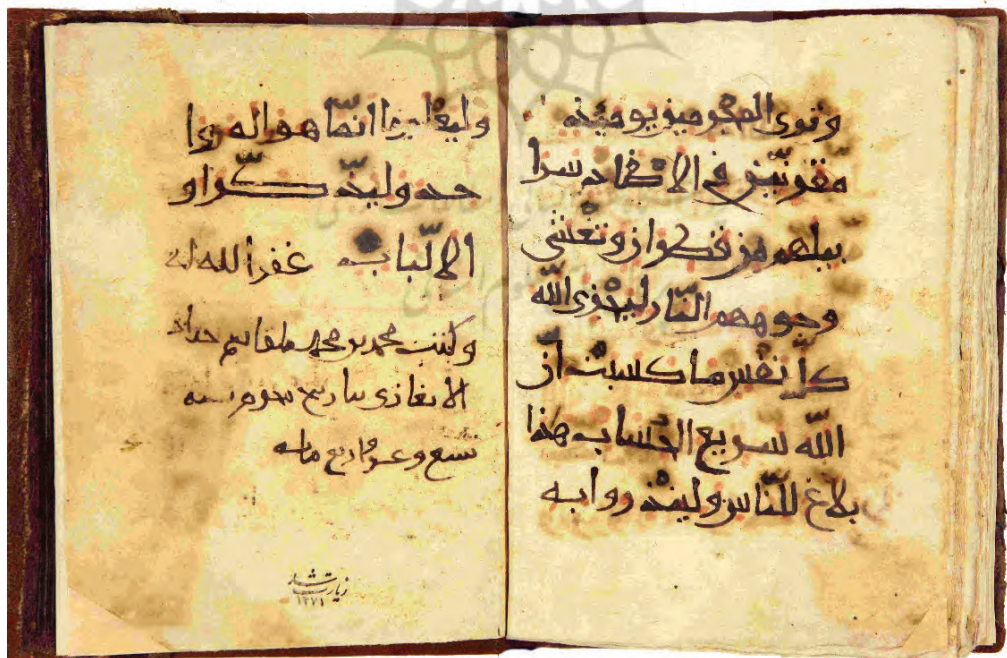 وترى المجرمين يومئذ
مقرّنين في الاصفاد سرا
بيلهم من قطران وتغشى
وجوههم النّار ليجزى اللّه
كل نفس ما كسبت انّ
اللّه سريع الحساب هذا
بلاغ للنّاس ولينذروا به
وليعلموا انّما هو اله وا
حد وليذّكّر او
الالباب غفر الله له
وكتب محمد بن محمد
بتاريخ سنه
سبع و اربع مائه
زیارت شد